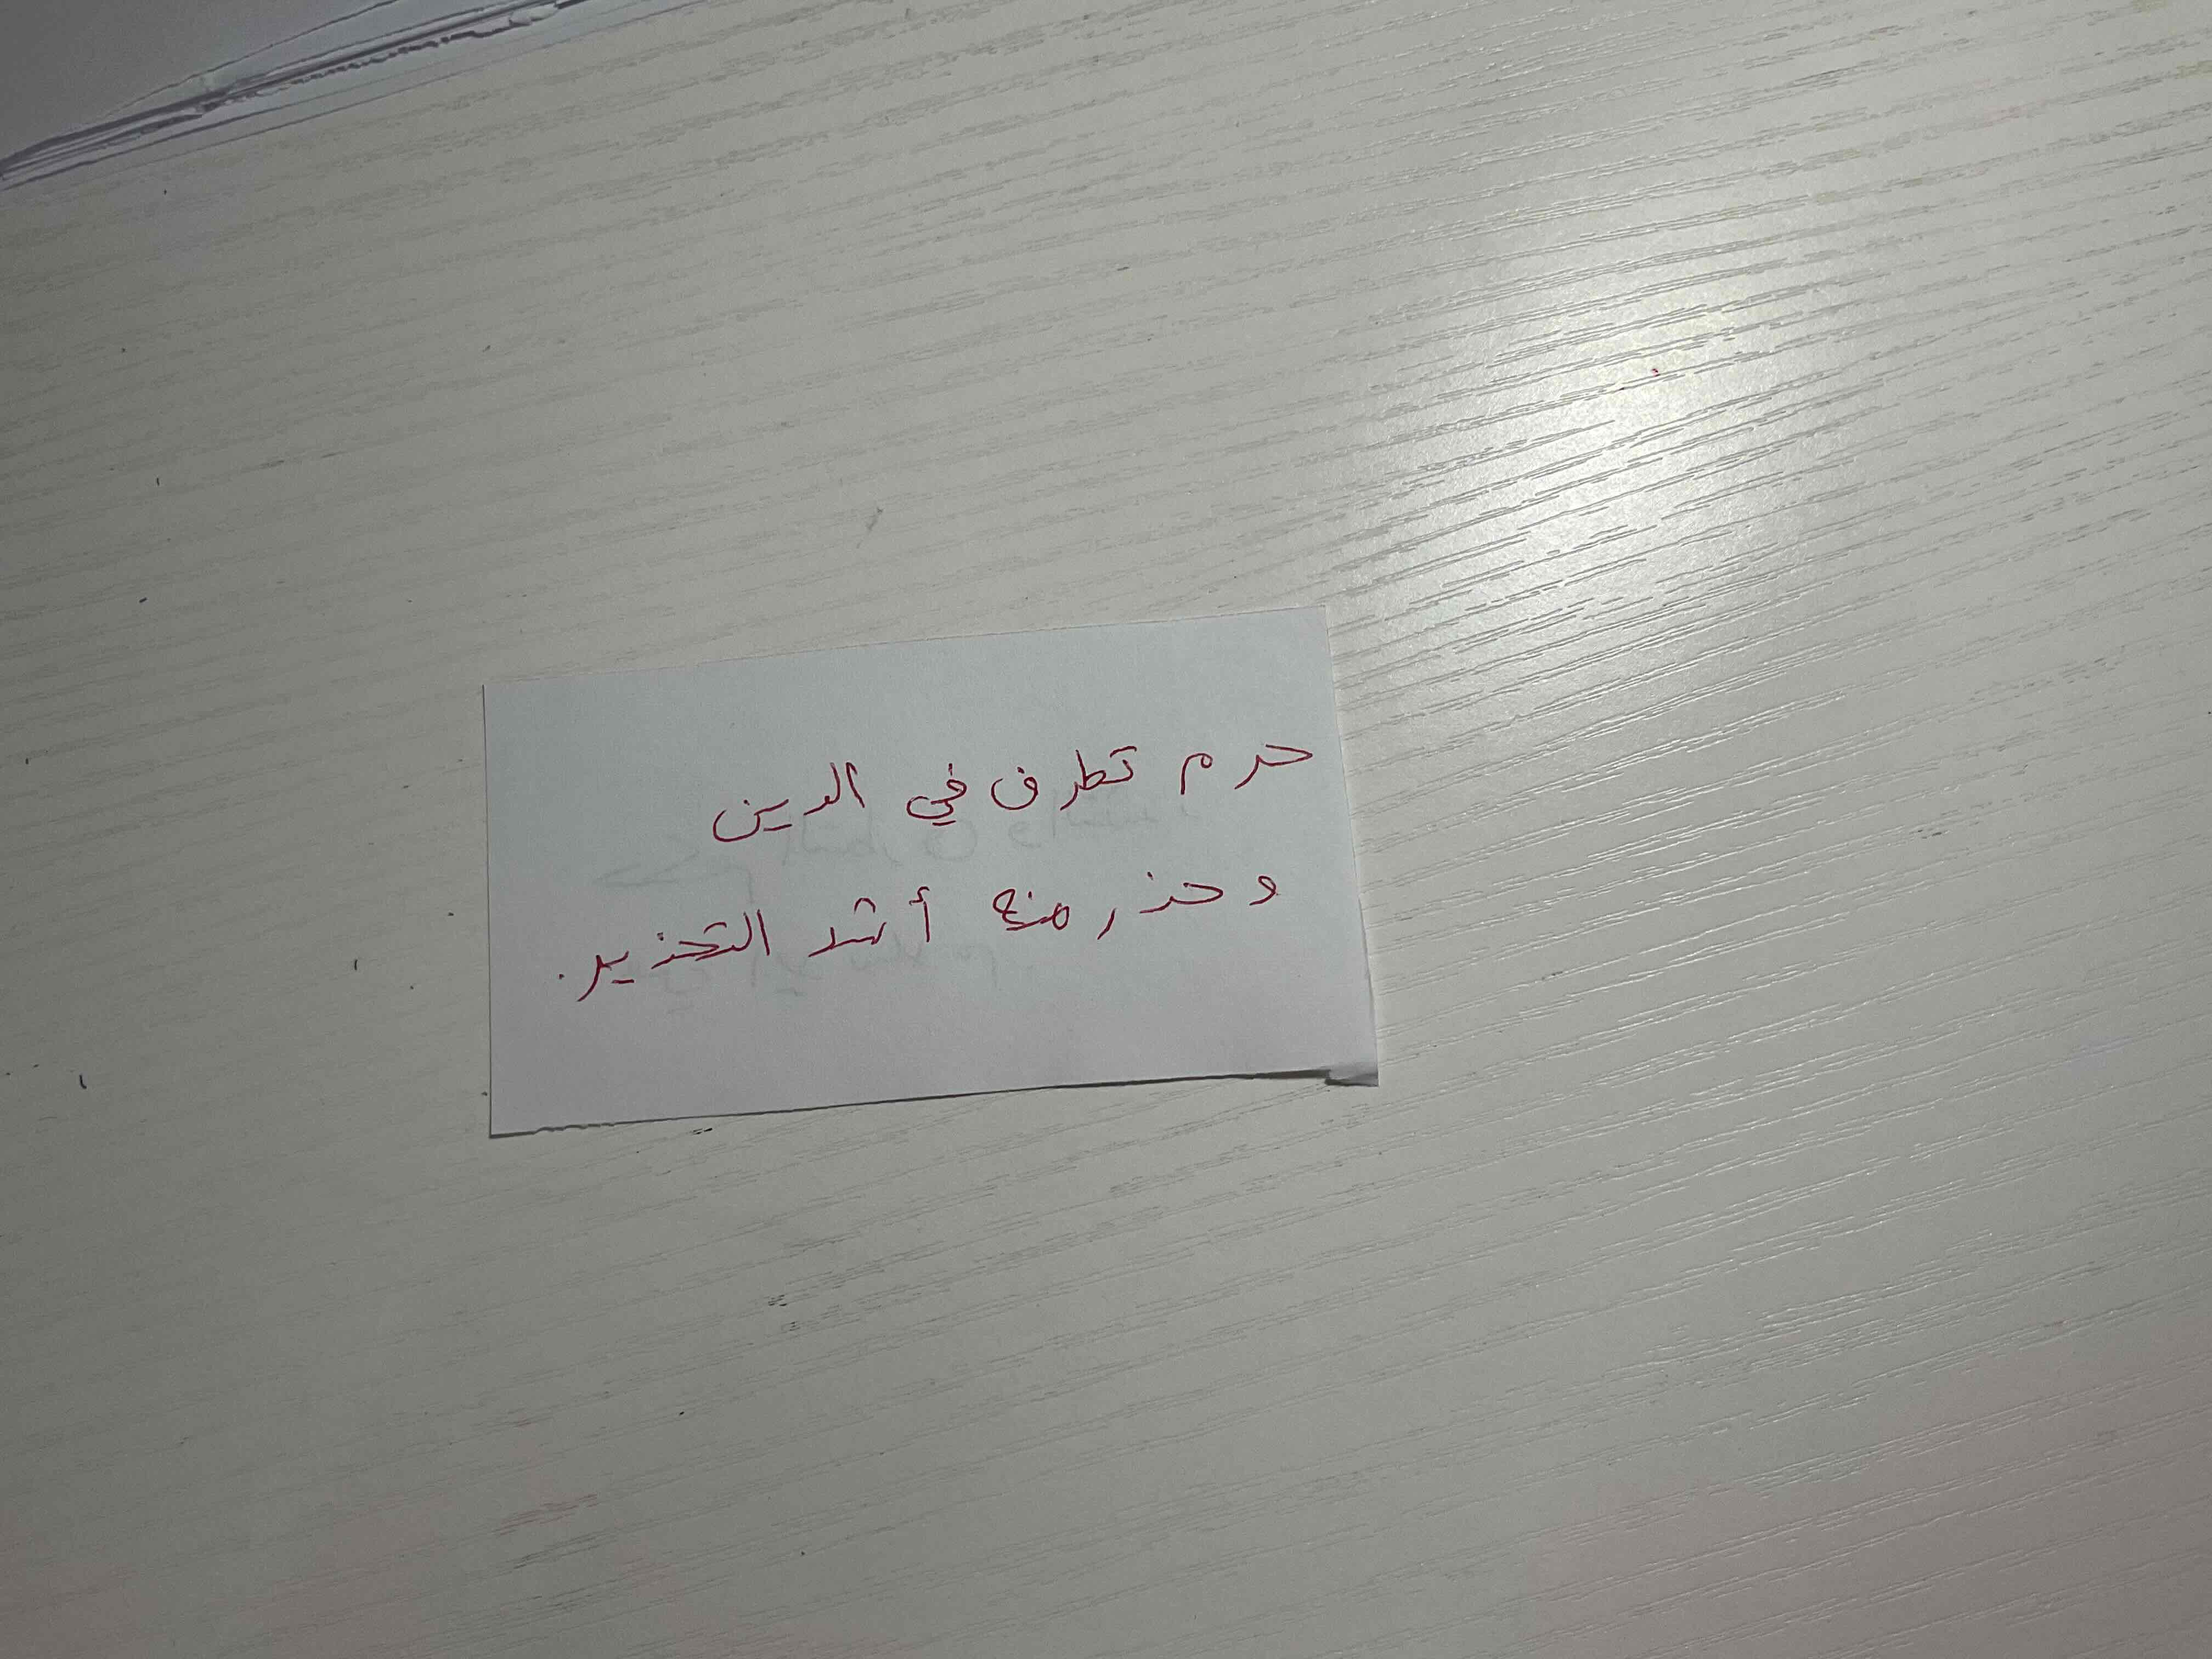 حرم تطرف في الدين
وحذر منه أشد التحذير.